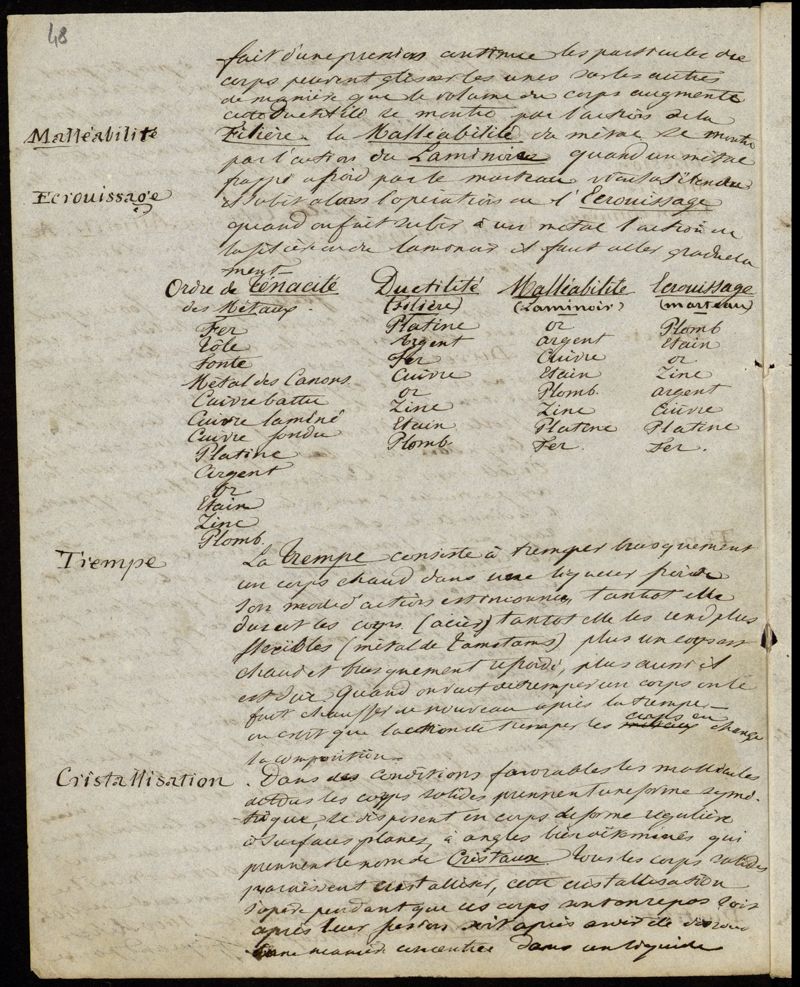 48
fait d'une pression continue les particules du
corps peuvent glisser les unes sur les autres
de manière que le volume du corps augmente
cette Ductilité se montre par l'action de la
Malléabilité
Filière. la Malléabilité du métal se montre
par l'action du Laminoir quand un métal
Ecrouissage
frappé a froid par le marteau s'étendre
il subit alors l'operation de l'Ecrouissage
quand on fait subir à un metal l'action de
la filière ou du laminoir il faut aller graduela
ment
Ordre de Ténacité Ductilité Malléabilité Ecrouissage
des Métaux. (Filière) (Laminoir) (marteau)
Fer Platine or Plomb
Tôle Argent argent Etain
Fonte Fer Cuivre or
Métal des Canons Cuivre Etain Zinc
Cuivre battu or Plomb. argent
Cuivre laminé Zinc Zinc Cuivre
Cuivre fondu Etain Platine Platine
Platine Plomb. Fer. Fer.
Argent
or
Etain
Zinc
Plomb.
Trempe
La Trempe consiste à tremper brusquement
un corps chaud dans une liqueur froide
son mode d'action est inconnu, tantot elle
durcit les corps (acier) tantot elle les rend plus
flexibles (métal de Tamtams) plus un corps est
chaud et brusquement refroidi, plus aussi il
est dur Quand on vient de tremper un corps on le
fait chauffer de nouveau après la trempe –
on croit que l'action de tremper les corps en change
la composition.
Cristallisation
. Dans des conditions favorables les molécules
de tous les corps solides prennent une forme symé-
trique, se disposent en corps de forme régulière
à surfaces planes, à angles bien déterminés qui
prennent le nom de Cristaux. Tous les corps solides
paraissent cristalliser, cette cristallisation
s'opère pendant que ces corps sont en repos soit
après leur fusion soit après avoir été dissous
d'une manière concentrée dans un liquide